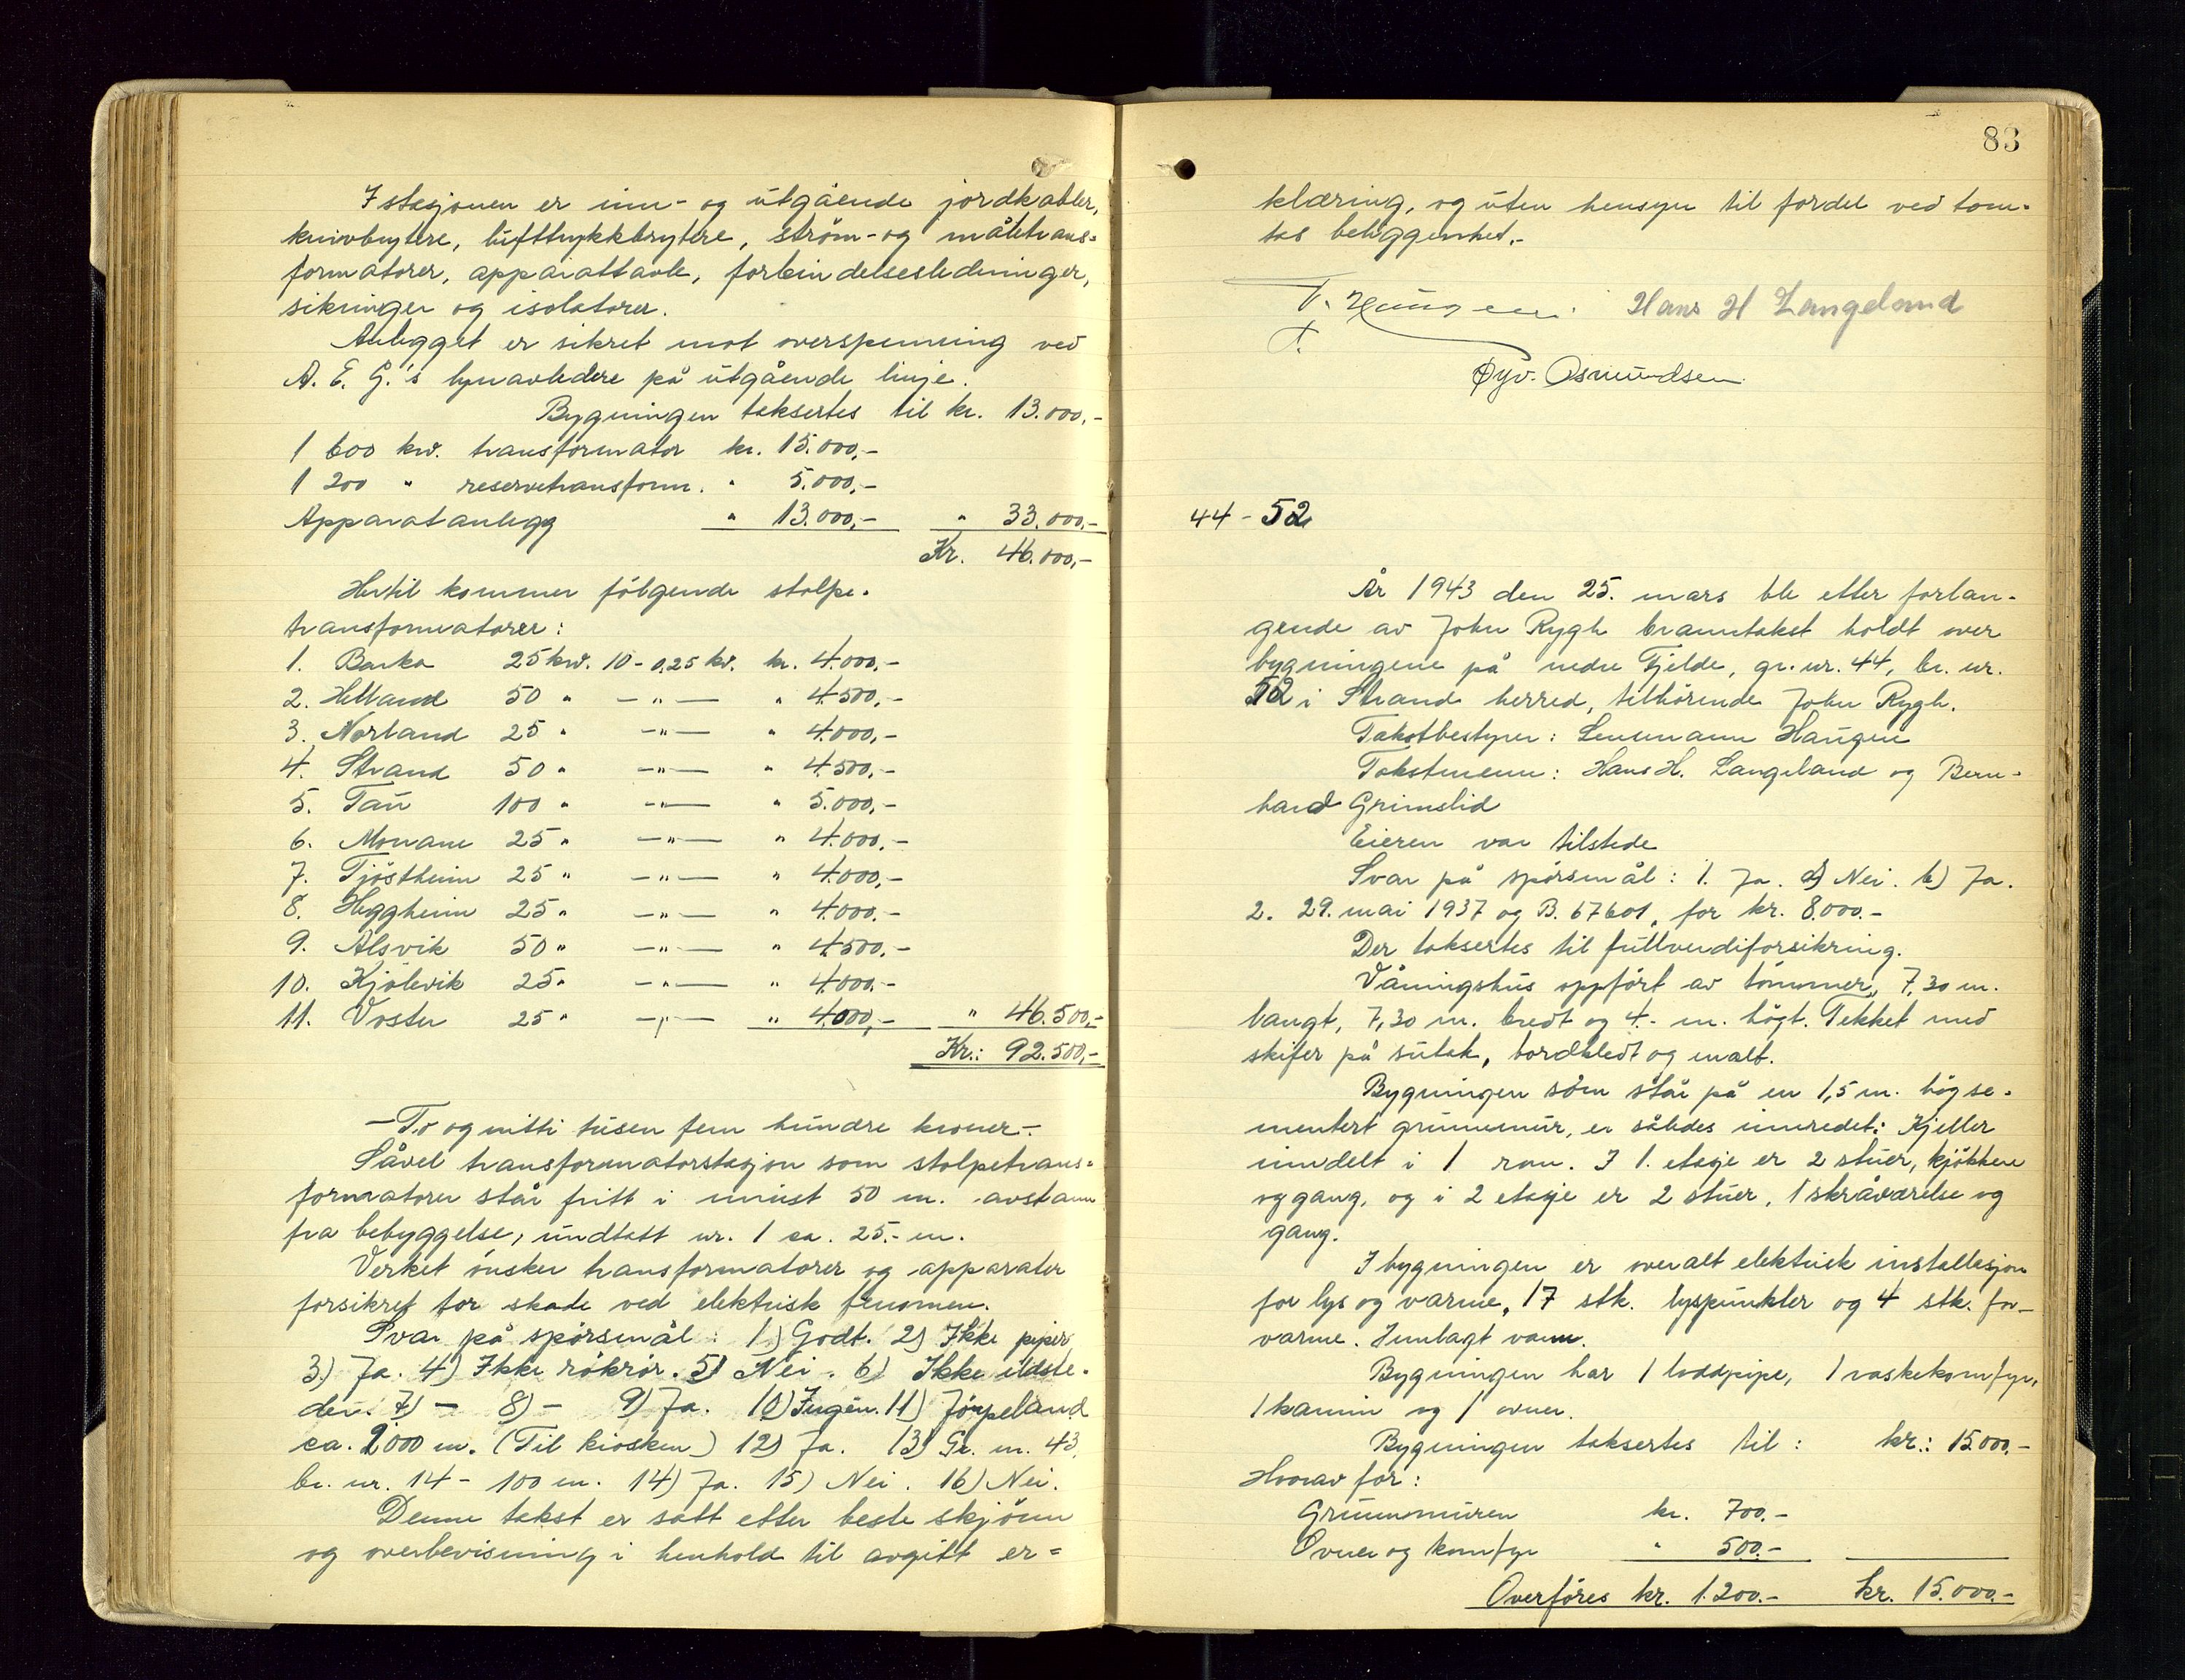 I stasjonen er inn- og utgående jordkabler,
knivbrytere, lufttrykkbrytere, strøm- og måletrans-
formatorer, apparattavle, forbindelsesledninger,
sikringer og isolatorer.
Anlegget er sikret mot overspenning ved
A. E. G.'s lynavledere på utgående linje.
Bygningen taksertes til kr. 13.000,-
1 600 kw. transformator kr. 15.000,-
1 200 " reservetransform. " 5.000,-
Apparatanlegg " 13.000,- " 33.000,-
Kr. 46.000,-
Hertil kommer følgende stolpe-
transformatorer:
1. Barka 25 kw. 10 - 0,25 kv. kr. 4.000,-
2. Helland 50 " — " — " 4.500,-
3. Norland 25 " — " — " 4.000,-
4. Strand 50 " — " — " 4.500,-
5. Tau 100 " — " — " 5.000,-
6. Monane 25 " — " — " 4.000,-
7. Tjøstheim 25 " — " — " 4.000,-
8. Heggheim 25 " — " — " 4.000.-
9. Alsvik 50 " — " — " 4.500,-
10. Kjølevik 25 " — " — " 4.000.-
11. Voster 25 " — " — " 4.000,- " 46.500,-
Kr.: 92.500,-
- To og nitti tusen fem hundre kroner -
Såvel transformatorstasjon som stolpetrans-
formatorer står fritt i minst 50 m. avstann
fra bebyggelse, undtatt nr. 1 ca. 25.- m.
Verket ønsker transformatorer og apparater
forsikret for skade ved elektrisk fenomen.
Svar på spørsmål: 1) Godt. 2) Ikke piper
3) Ja. 4) Ikke rökrör. 5) Nei. 6) Ikke ildste-
der. 7) - 8) - 9) Ja. 10) Ingen. 11) Jörpeland
ca. 2000 m. (Til kiosken) 12) Ja. 13) Gr. nr. 43,
br. nr. 14 - 100 m. 14) Ja. 15) Nei. 16) Nei.
Denne takst er satt etter beste skjönn
og overbevisning i henhold til avgitt er=
83
klæring, og uten hensyn til fordel ved tom-
tas beliggenhet.-
T. Haugen. Hans H Langeland
Øyv. Osmundsen
44 - 52
År 1943 den 25. mars ble etter forlan-
gende av John Rygh branntakst holdt over
bygningene på nedre Fjelde, gr. nr. 44, br. nr.
52 i Strand herred, tilhörende John Rygh.
Takstbestyrer: Lensmann Haugen
Takstmenn: Hans H. Langeland og Bern-
hard Grimslid
Eieren var tilstede
Svar på spörsmål: 1. Ja. a) Nei. b) Ja.
2. 29. mai 1937 og B. 67601, for kr. 8.000.-
Der taksertes til fullverdiforsikring.
Våningshus oppfört av tömmer, 7,30 m.
langt, 7,30 m. bredt og 4.- m. högt. Tekket med
skifer på sutak, bordkledt og malt.
Bygningen som står på en 1,5 m. hög se-
mentert grunnmur, er således innredet: Kjeller
inndelt i 1 rom. I 1. etasje er 2 stuer, kjökken
og gang, og i 2 etasje er 2 stuer, 1 skråværelse og
gang.
I bygningen er overalt elektrisk installasjon
for lys og varme, 17 stk. lyspunkter og 4 stk. for
varme. Innlagt vann.
Bygningen har 1 loddpipe, 1 vaskekomfyr,
1 kamin og 1 ovner.
Bygningen taksertes til: kr.: 15.000,-
Hvorav for:
Grunnmuren kr. 700.-
Ovner og komfyr " 500.-
Overföres kr. 1.200.- kr. 15.000.-